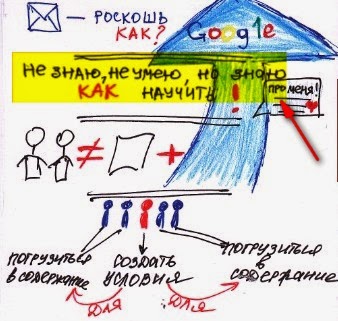 — РОСКОШЬ
КАК?
Google
НЕ ЗНАЮ, НЕ УМЕЮ, НО ЗНАЮ
КАК НАУЧИТЬ!
ПРО МЕНЯ!
≠ +
ПОГРУЗИТЬСЯ
В СОДЕРЖАНИЕ
СОЗДАТЬ
УСЛОВИЯ
ПОГРУЗИТЬСЯ
В
СОДЕРЖАНИЕ
ДЛЯ ДЛЯ